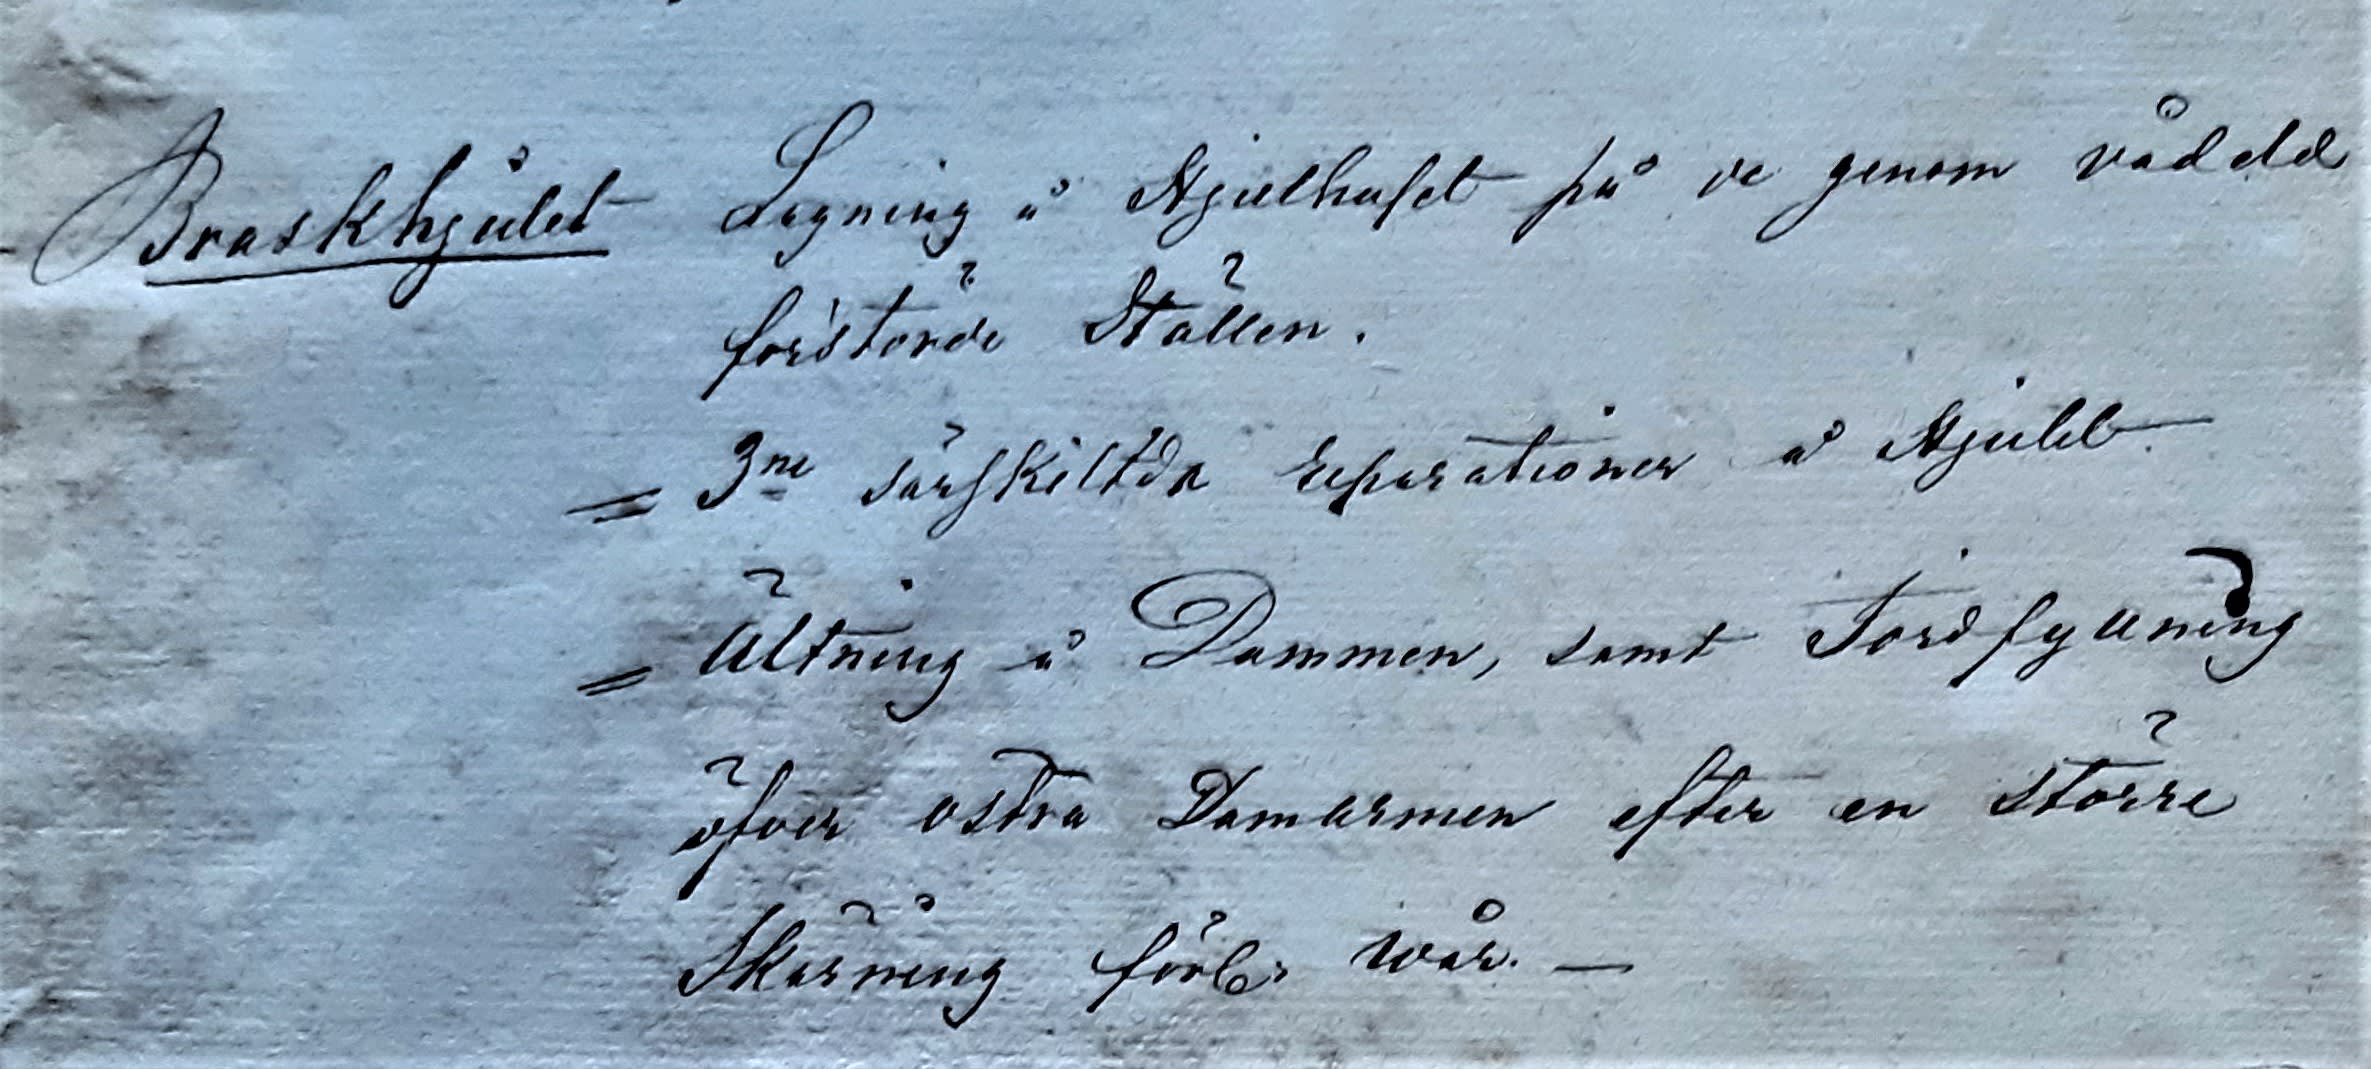 Braskhjulet Lagning å Hjulhuset på de genom vådeld
förstörde Ställen.
= 3ne särskiltda reparationer å Hjulet.
= Ältning å Dammen, samt Jordfyllning
öfver östra Damarmen efter en större
Skärning förl. wår. —